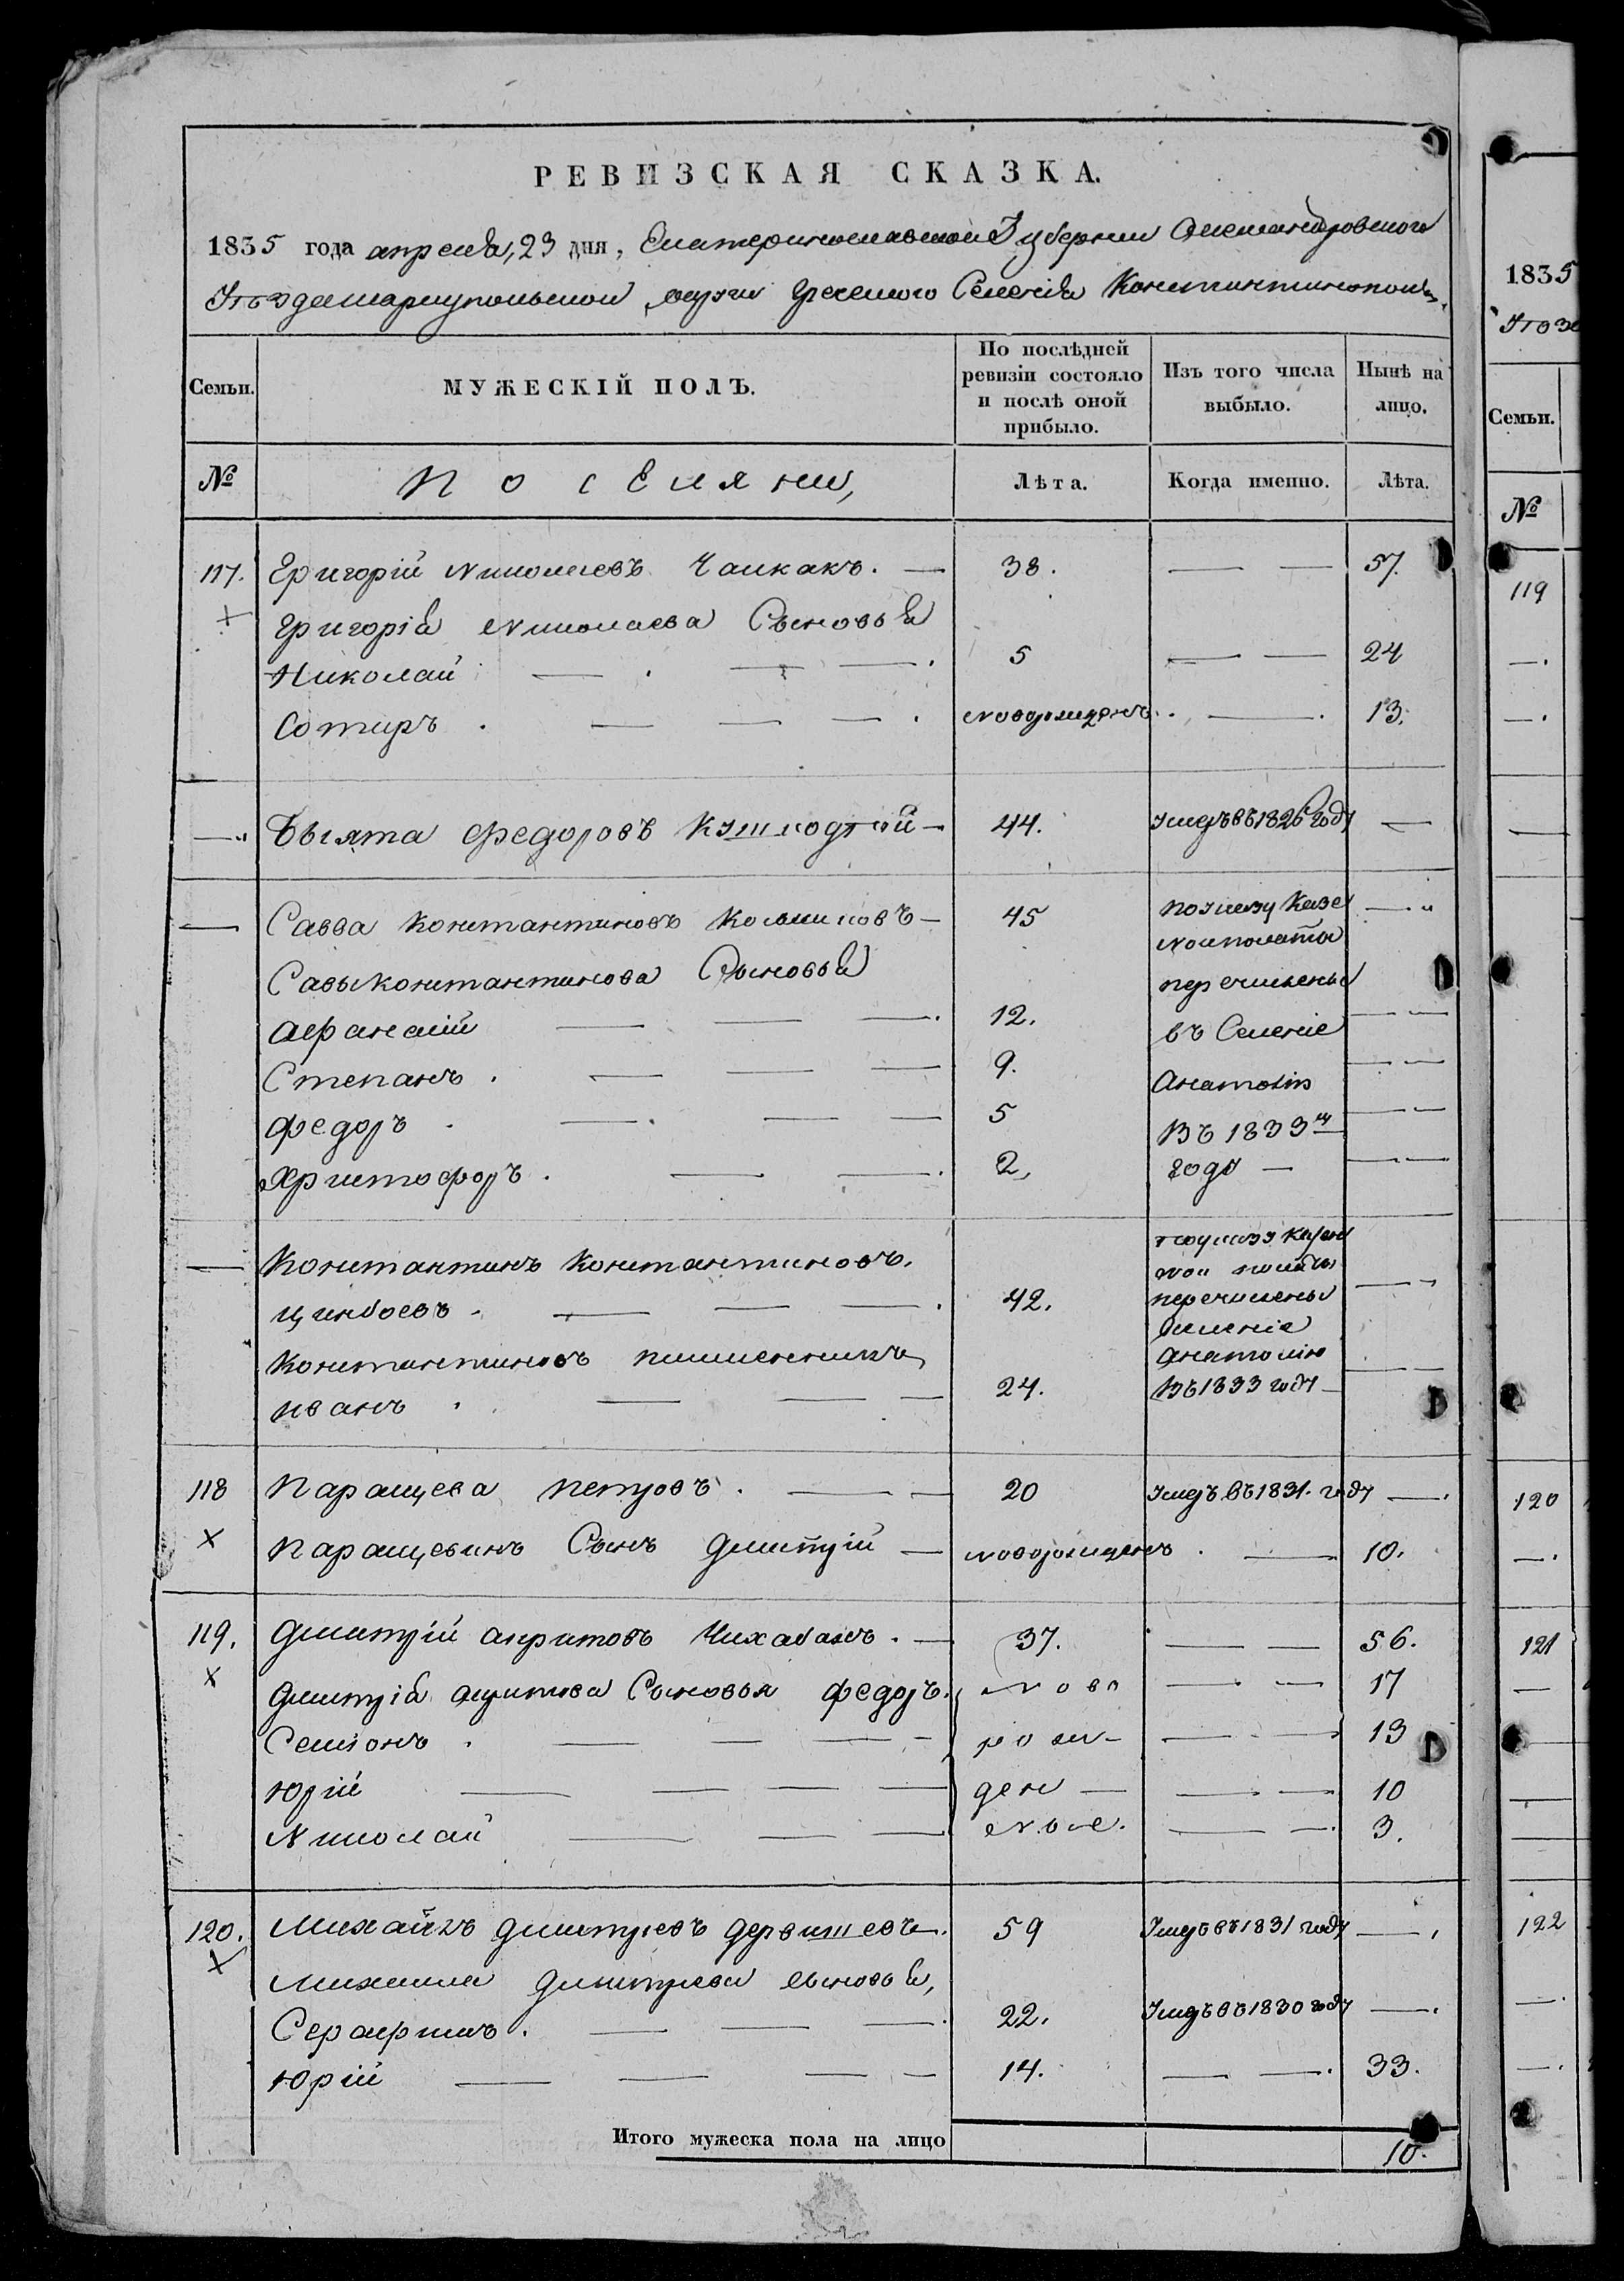 РЕВИЗСКАЯ СКАЗКА.
1835 года апреля, 23 дня, Екатеринославской Губернии Александровского
Уезда мариупольской округи греческого Селения Константинополя
Семьи. МУЖЕСКІЙ ПОЛЪ. По послѣдней ревизіи состояло и послѣ оной прибыло. Изъ того числа выбыло. Нынѣ на лицо.
№ Поселяни, Лѣта. Когда именно. Лѣта.
117. Григорій Николаевъ Чалкакъ. — 38. — — 57.
Григорія Николаева Сыновья
Николай — 5 — — 24
Сотиръ — новорожденъ — 13.
Федоровъ — 44. умеръ въ 1826 году —
— Савва Константиновъ — 45 по указу Казен
ной полаты
Савы Константинова Сыновья перечислены
Афанасій — 12. въ Селеніе
Степанъ — 9. Анатолію
Федоръ — 5 въ 1833м
Христофоръ — 2, году —
— Константинъ Константиновъ. по указу Казен
ной полаты
Цинбоевъ — 42. перечислены
Селеніе
Константиновъ племенникъ Анатолію
Иванъ — 24. въ 1833 году —
118 Паращева Петровъ — 20 умеръ въ 1831. году —
X Паращевинъ Сынъ Дмитрій — новорожденъ — 10.
119. Дмитрій Акритовъ Чихабахъ. — 37. — — 56.
X Дмитрія Акритова Сыновья Федоръ. ново — — 17
Семіонъ — рож- — — 13
Юрій — ден — — — 10
Николай — ные. — — 3.
120. Михайлъ Дмитріевъ Дервишевъ. 59 Умеръ въ 1831 году —
X Михаила Дмитріева сыновья,
Серафимъ. — 22. Умеръ въ 1830 году —
Юрій — 14. — — 33.
Итого мужеска пола на лицо 10.
1835
Уезд
Семьи.
№
119
120
121
122